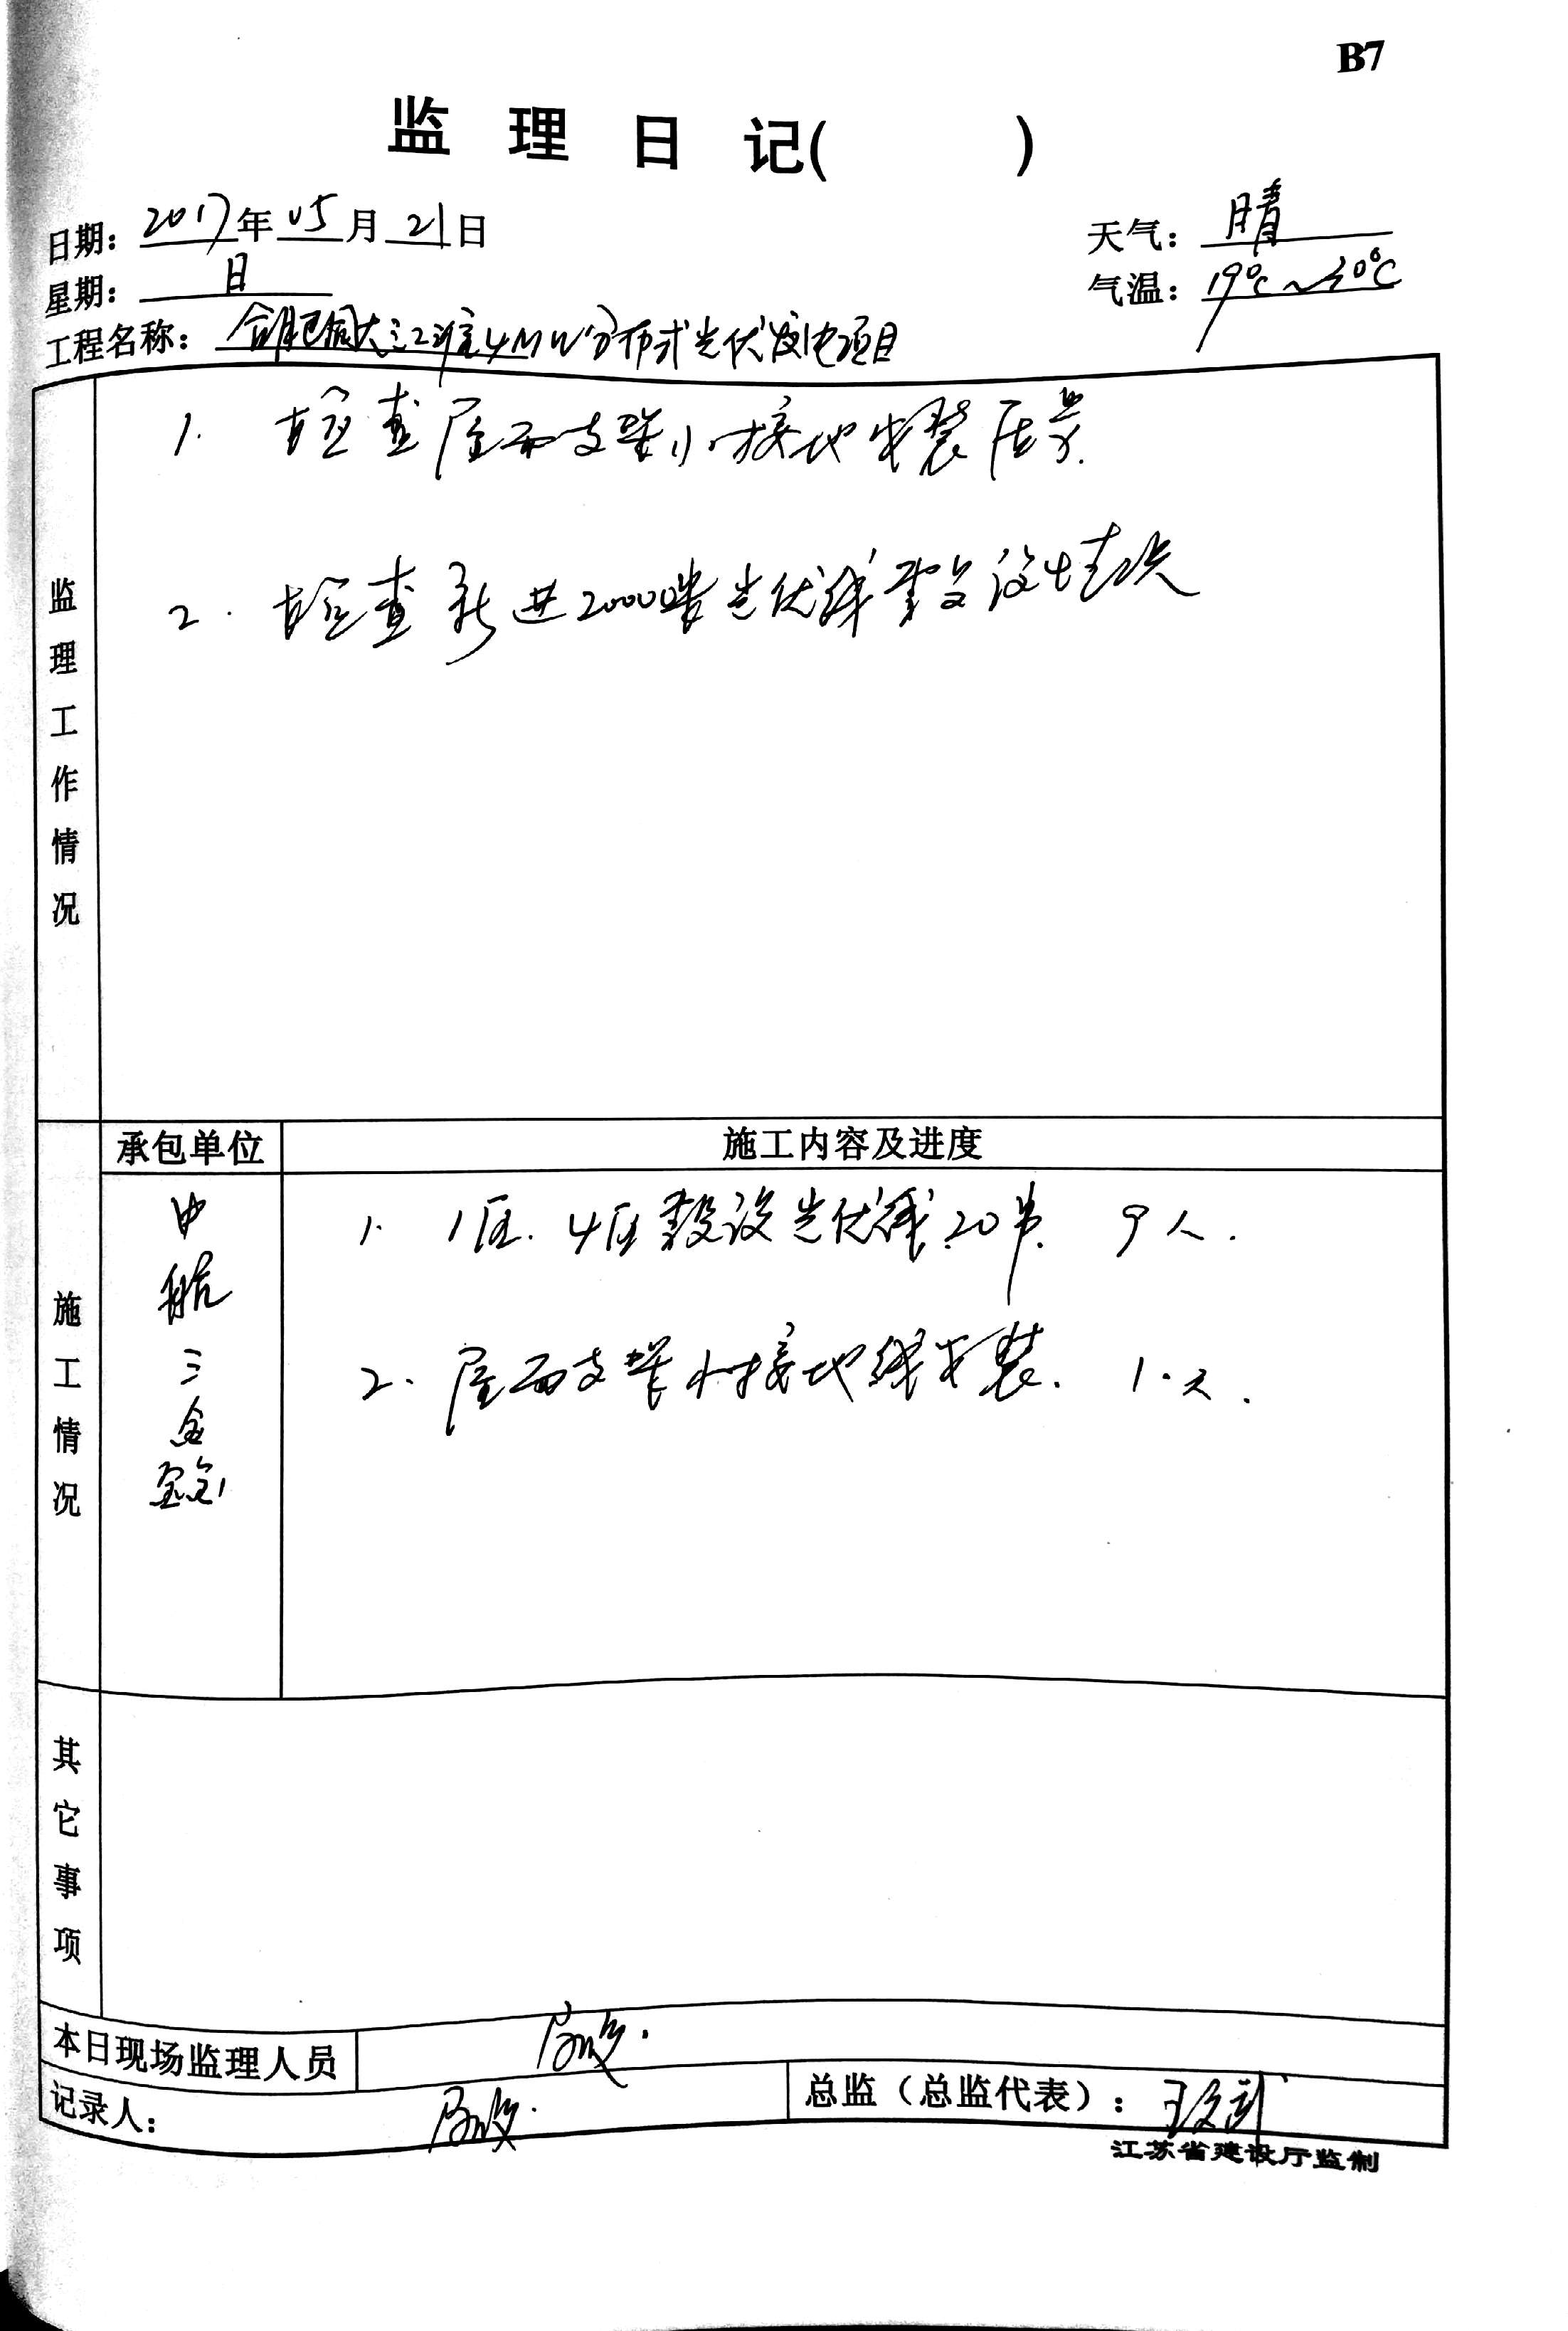 B7
监理日记( )
日期：2017年05月21日
天气：晴
星期：日
气温：19℃~30℃
工程名称：合肥同大江淮4MW分布式光伏发电项目
监理工作情况
1. 检查屋面支架小接地安装质量.
2. 检查新进20000米光伏线敷设情况
施工情况
承包单位
施工内容及进度
中航三鑫
1. 1区. 4区敷设光伏线. 20#. 9人.
2. 屋面支架小接地线安装. 1.人.
其它事项
本日现场监理人员
记录人：
总监（总监代表）：
江苏省建设厅监制